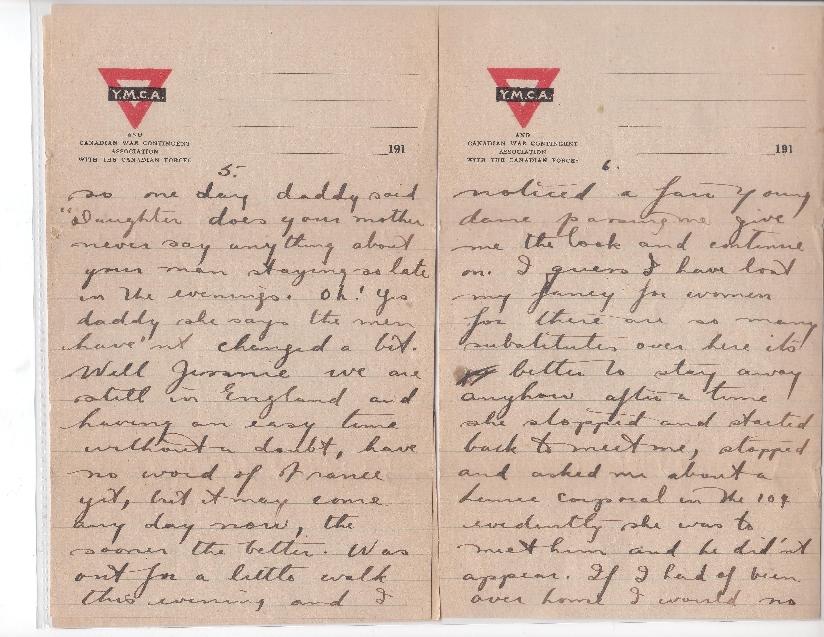 Y.M.C.A.
AND
CANADIAN WAR CONTINGENT
ASSOCIATION
WITH THE CANADIAN FORCES
191
5.
so one day daddy said
"Daughter does your mother
never say anything about
your man staying so late
in the evenings. Oh! Yes
daddy she says the men
have'nt changed a bit.
Well Jimmie we are
still in England and
having an easy time
without a doubt, have
no word of France
yet, but it may come
any day now, the
sooner the better. Was
out for a little walk
this evening and I
Y.M.C.A.
AND
CANADIAN WAR CONTINGENT
ASSOCIATION
WITH THE CANADIAN FORCES
191
6.
noticed a fair young
dame passing me give
me the look and continue
on. I guess I have lost
my fancy for women
for there are so many
substitutes over here its
better to stay away
anyhow after a time
she stopped and started
back to meet me, stopped
and asked me about a
lance corporal in the 104
evidently she was to
meet him and he did'nt
appear. If I had of been
over home I would no